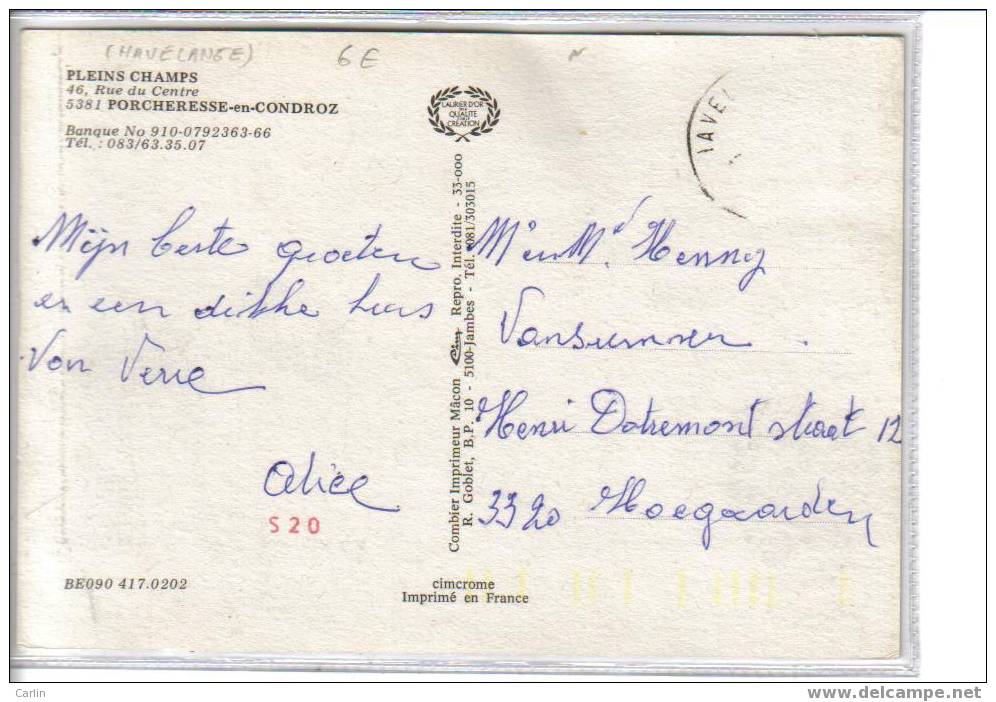 (HAVELANGE)
6 E
PLEINS CHAMPS
46, Rue du Centre
5381 PORCHERESSE-en-CONDROZ
Banque No 910-0792363-66
Tél. : 083/63.35.07
LAURIER D'OR
QUALITÉ
CREATION
Mijn beste groeten
en een dikke kus
Von Verre
Alice
S20
BE090 417.0202
Combier Imprimeur Mâcon Cim Repro. Interdite - 33-000
R. Goblet, B.P. 10 - 5100-Jambes - Tél. 081/303015
cimcrome
Imprimé en France
IAVE
Mr en Md Henny
Vansumner
Henri Dotremont straat 12
3320 Hoegaarden
Carlin
www.delcampe.net